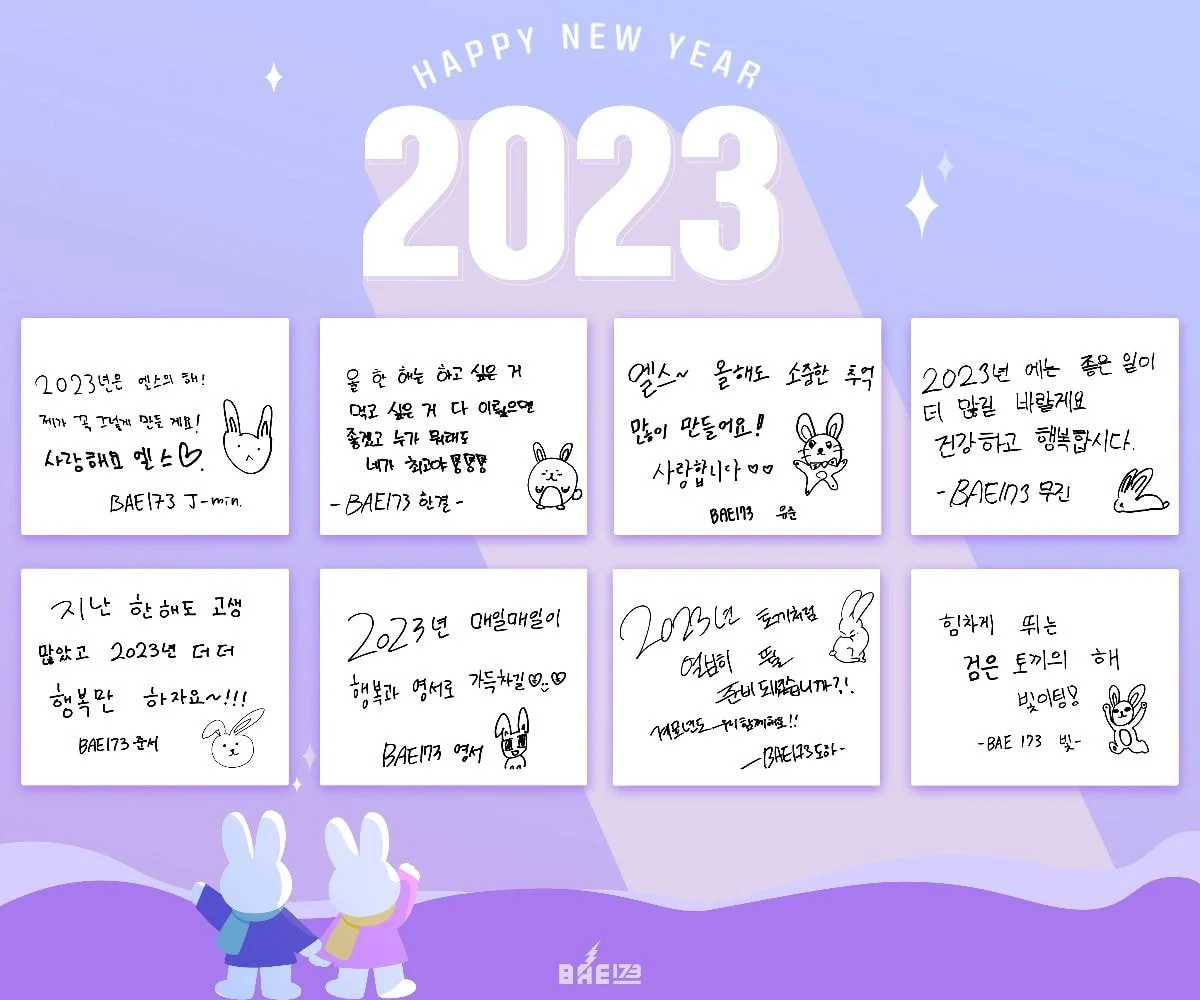 HAPPY NEW YEAR
2023
2023년은 엘스의 해!
제가 꼭 그렇게 만들게요!
사랑해요 엘스♡.
BAE173 J-min.
올 한 해는 하고 싶은 거
먹고 싶은 거 다 이뤘으면
좋겠고 누가 뭐래도
네가 최고야
-BAE173 한결-
엘스~ 올해도 소중한 추억
많이 만들어요!
사랑합니다 ♡♡
BAE173 유준
2023년 에는 좋은 일이
더 많길 바랄게요
건강하고 행복합시다.
-BAE173 무진
지난 한해도 고생
많았고 2023년 더더
행복만 하자요~!!!
BAE173 준서
2023년 매일매일이
행복과 영서로 가득차길
BAE173 영서
2023년 토끼처럼
열심히 뛸
준비 되었습니까?!
우리 함께해요!!
-BAE173 도하-
힘차게 뛰는
검은 토끼의 해
빛이팅!
-BAE 173 빛-
BAE173